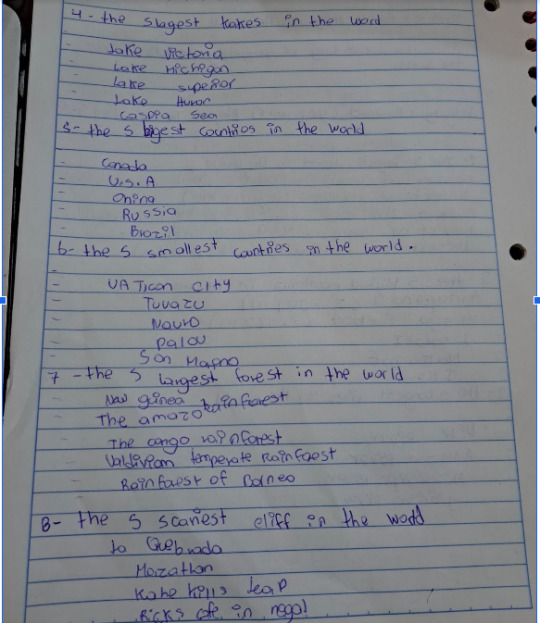 4- the 5lagest takes in the word
- Lake Victoria
- Lake Michigan
- Lake superior
- Lake Huror
- Caspia Sea
5- the 5 bigest countrios in the world
- Canada
- U.S.A
- China
- Russia
- Brazil
6- the 5 smallest countries in the world.
- VATican city
- Tuvazu
- Nauro
- palau
- San Marno
7 - the 5 largest forest in the world
- Naw ginea rainforest
- The amazo
- The congo rainforest
- Valdivian temperate rainforest
- Rainforest of Borneo
8- the 5 scariest cliff in the world
la Quebrada
Mazatlan
Kahe hills leap
Ricks in negal